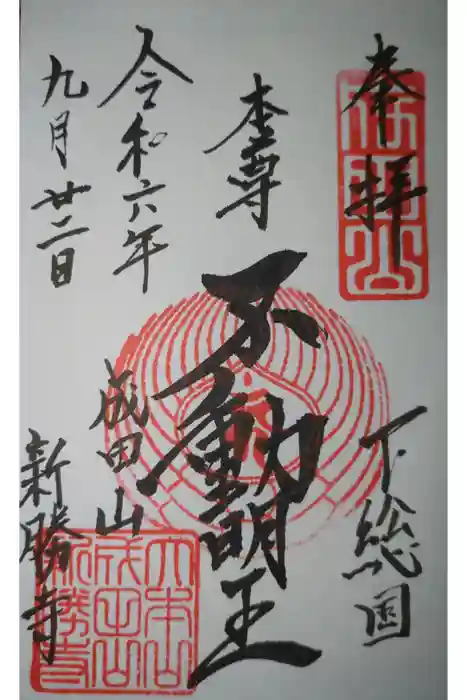 奉拝
下総国
本尊
不動明王
令和六年
九月廿二日
成田山
新勝寺
大本山
成田山
新勝寺